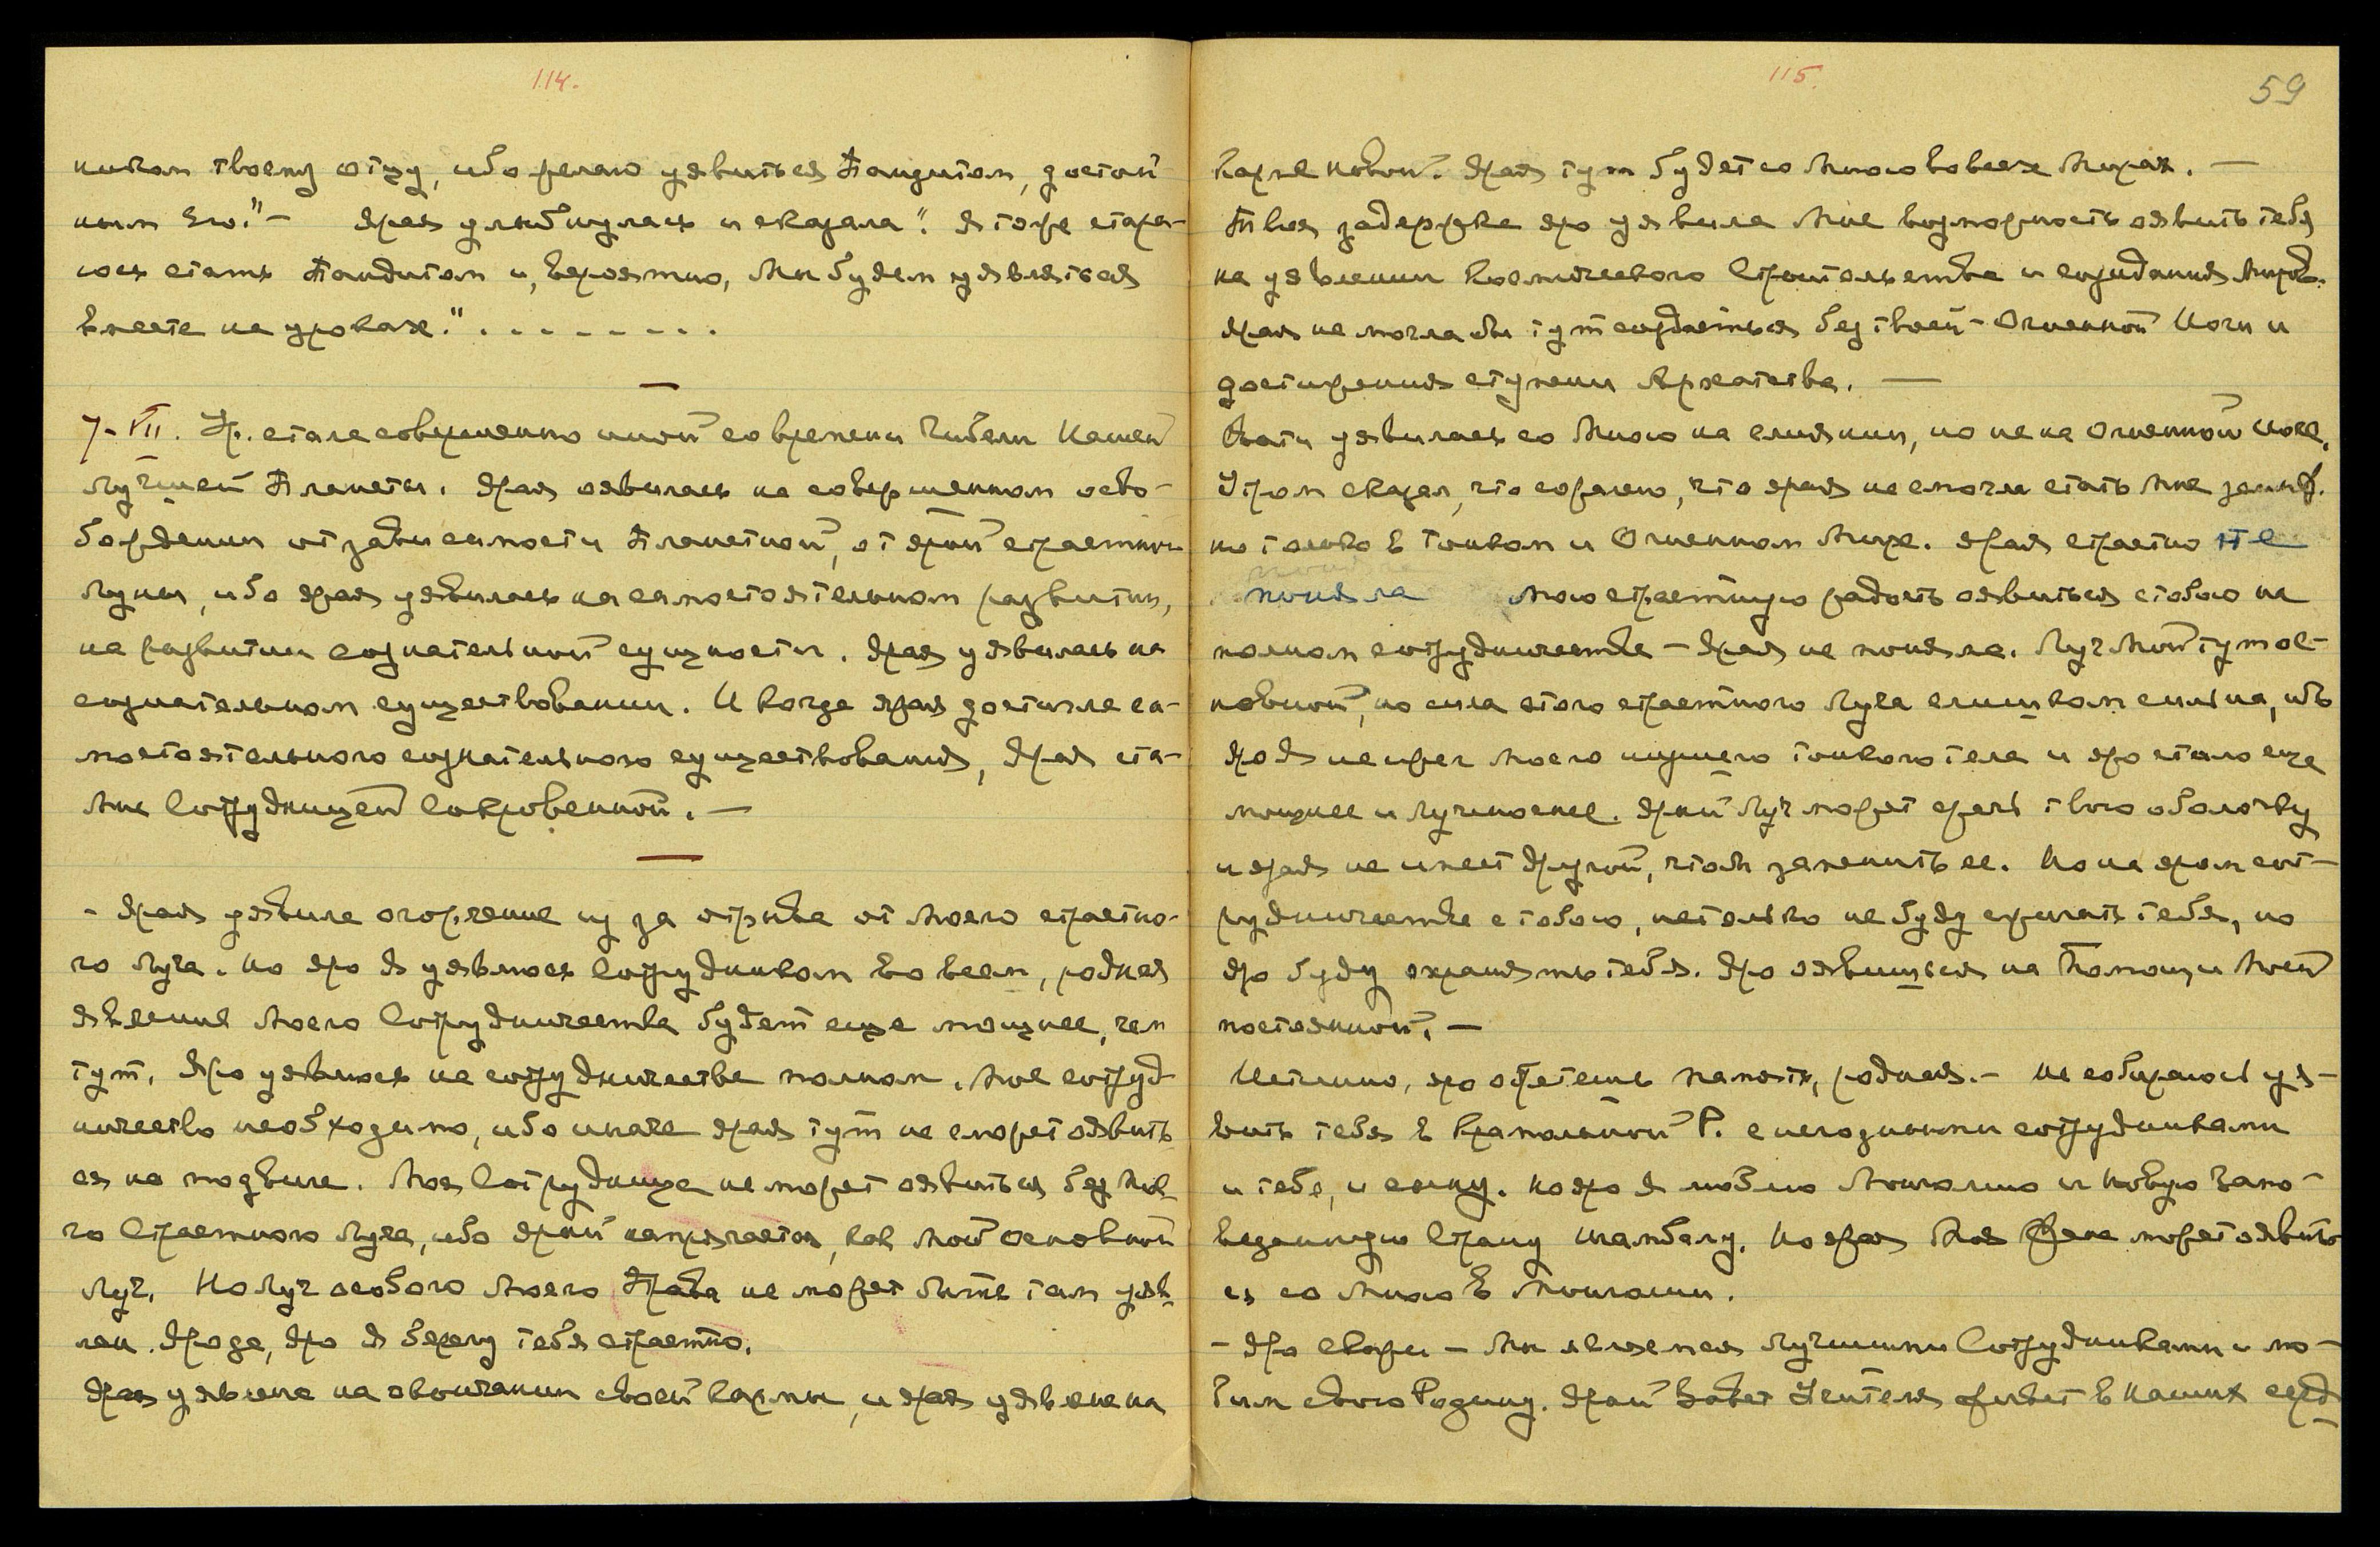 114.
ником твоему отцу, ибо желаю уявиться Пандитом, достой
ным Его." – Ярая улыбнулась и сказала ". Я тоже стара-
юсь стать Пандитом и, вероятно, Мы будем уявляться
вместе на уроках.". . . . . . . .
7-VII. Ур. стала совершенно иной со времени гибели Нашей
лучшей Планеты. Ярая оявилась на совершенном осво-
бождении от зависимости Планетной, от ярой страстной
Луны, ибо ярая уявилась на самостоятельном развитии,
на развитии сознательной сущности. Ярая уявилась на
сознательном существовании. И когда ярая достигла са-
мостоятельного сознательного существования, Ярая ста-
Мне Сотрудницей Сокровенной. –
- Ярая уявила огорчение из за отрыва от Моего страстно-
го Луча. Но яро Я уявлюсь Сотрудником во всем, родная
явление Моего Сотрудничества будет еще мощнее, чем
тут. Яро уявлюсь на сотрудничестве полном. Мое сотруд
ничество необходимо, ибо иначе ярая тут не сможет оявить
ся на подвиге. Моя Сотрудница не может оявиться без Мое
го Страстного Луча, ибо ярый напрягается, как Мой основной
Луч. Но Луч особого Моего Права не может быть там уяв
лен. Яро да, яро Я берегу тебя страстно.
Ярая уявлена на окончании своей кармы, и ярая уявлена на
115.
59
карме новой. Ярая тут будет со Мною во всех Мирах. –
Твоя задержка яро уявила Мне возможность оявить тебя
на уявлении Космического Строительства и создания Миров.
Ярая не могла бы тут создаться без твоей – Огненной Йоги и
достижения ступени Архатства. –
Мать уявилась со Мною на слиянии, но не на Огненной Йоге.
Утром сказал, что сожалею, что ярая не смогла стать Мне
но только в Тонком и Огненном Мире. Ярая страстно не
поняла мою страстную радость оявиться с тобою на
полном сотрудничестве – Ярая не поняла. Луч Мой тут ос-
новной, но сила этого страстного Луча слишком сильна, ибо
яро Я не сжег Моего низшего тонкого тела и яро стало еще
мощнее и лучшее. Ярый Луч может сжечь твою оболочку
и ярая не имеет другой, чтобы заменить ее. Но на яром сот-
рудничестве с тобою, не только не буду сжигать тебя, но
яро буду охранять тебя. Яро оявишься на Помощи Моей
постоянной. –
Истинно, яро обретешь память, родная. – Не собираюсь уя-
вить тебя в крамольной Р. с негодными сотрудниками
и тебе, и сыну. Но яро Я люблю Монголию и Новую Запо-
веданную Страну Шамбалу. Но ярая Моя Жена может оявить
ся со Мною в Монголии.
- Яро скажи – Мы являемся лучшими Сотрудниками и лю-
бим свою Родину. Ярый Завет Учителя живет в Наших серд